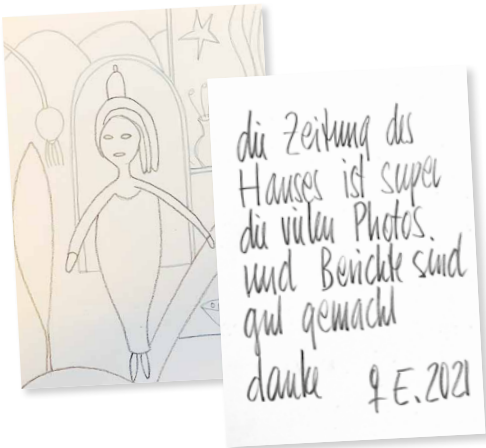 die Zeitung des
Hauses ist super
die vielen Photos.
und Berichte sind
gut gemacht
danke E. 2021